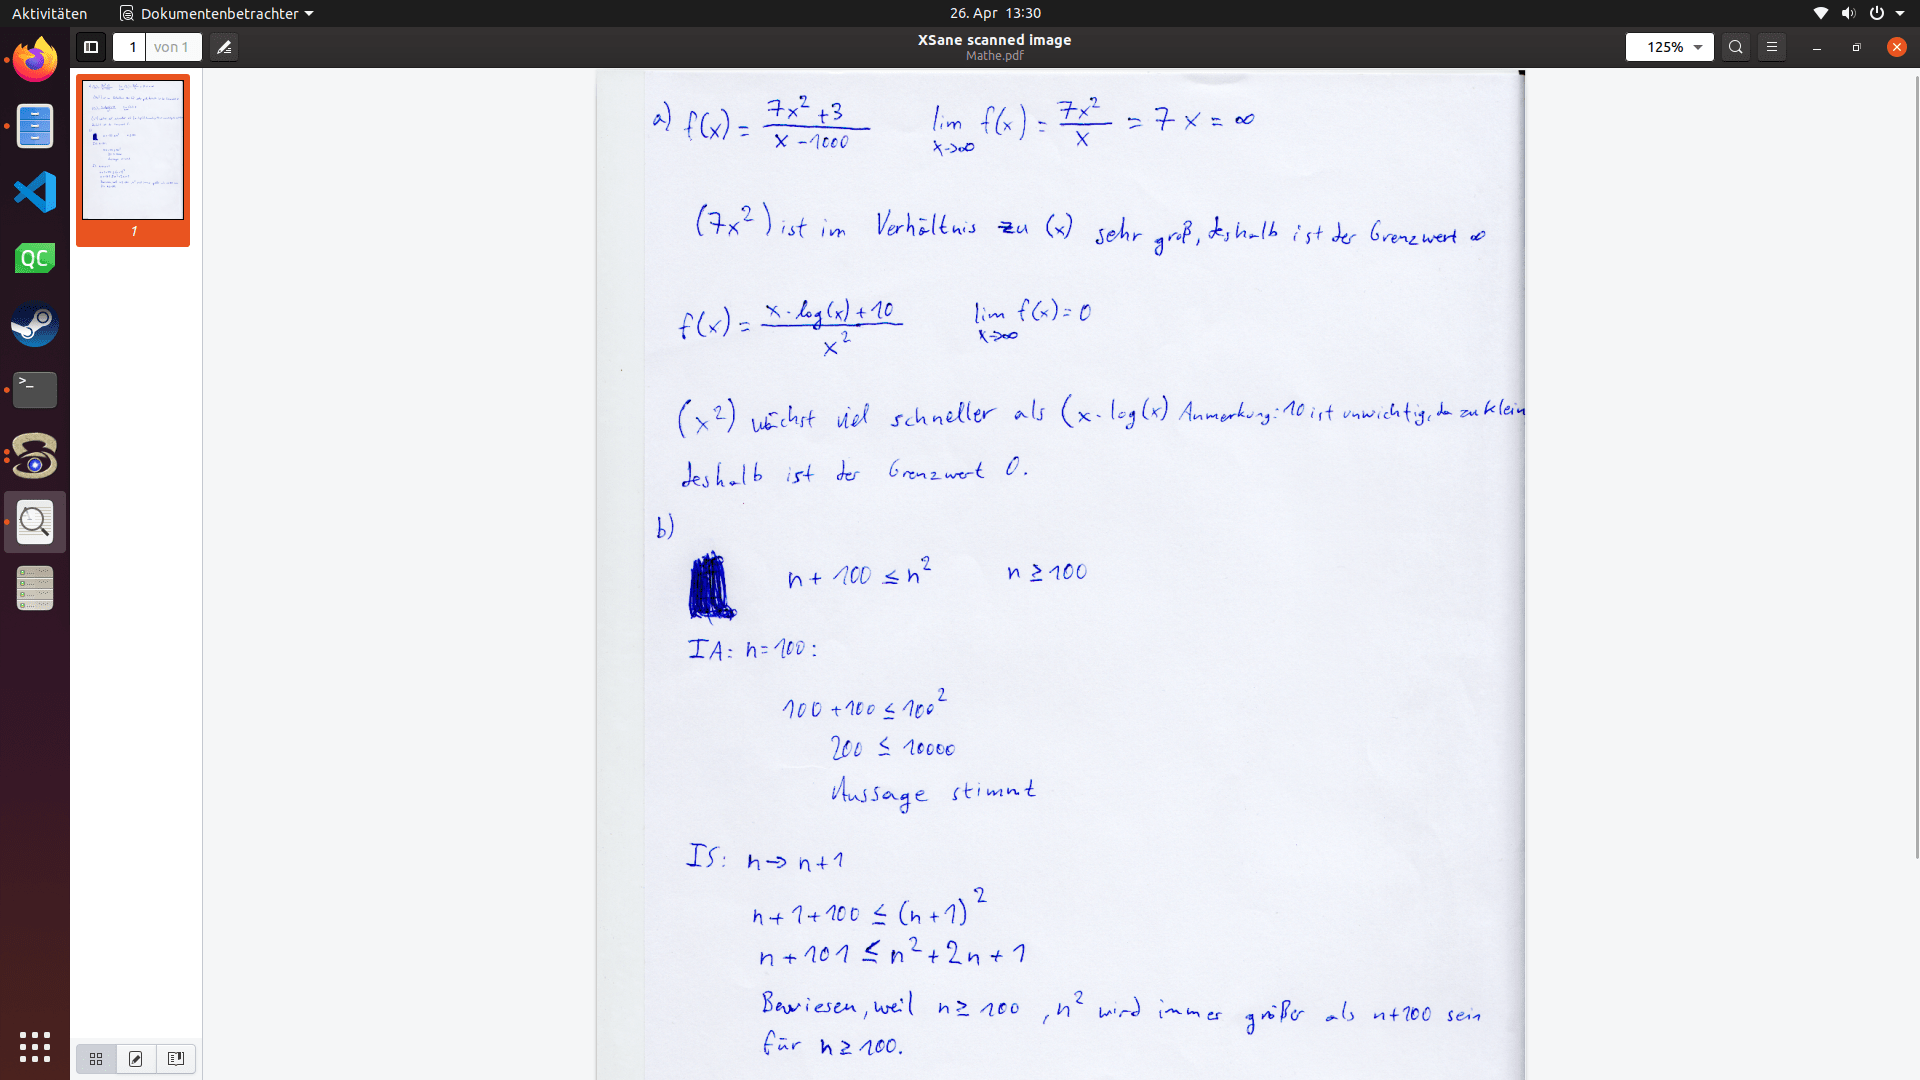 Aktivitäten
Dokumentenbetrachter
26. Apr 13:30
1 von 1
XSane scanned image
Mathe.pdf
125%
1
QC
>_
a) f(x) = (7x² + 3)/(x - 1000)    lim x→∞ f(x) = 7x²/x = 7x = ∞
(7x²) ist im Verhältnis zu (x) sehr groß, deshalb ist der Grenzwert ∞
f(x) = (x · log(x) + 10)/x²    lim x→∞ f(x) = 0
(x²) wächst viel schneller als (x · log(x) Anmerkung: 10 ist unwichtig, da zu klein
deshalb ist der Grenzwert 0.
b)
n + 100 ≤ n²    n ≥ 100
IA: n = 100:
100 + 100 ≤ 100²
200 ≤ 10000
Aussage stimmt
IS: n → n + 1
n + 1 + 100 ≤ (n + 1)²
n + 101 ≤ n² + 2n + 1
Bewiesen, weil n ≥ 100, n² wird immer größer als n + 100 sein
für n ≥ 100.